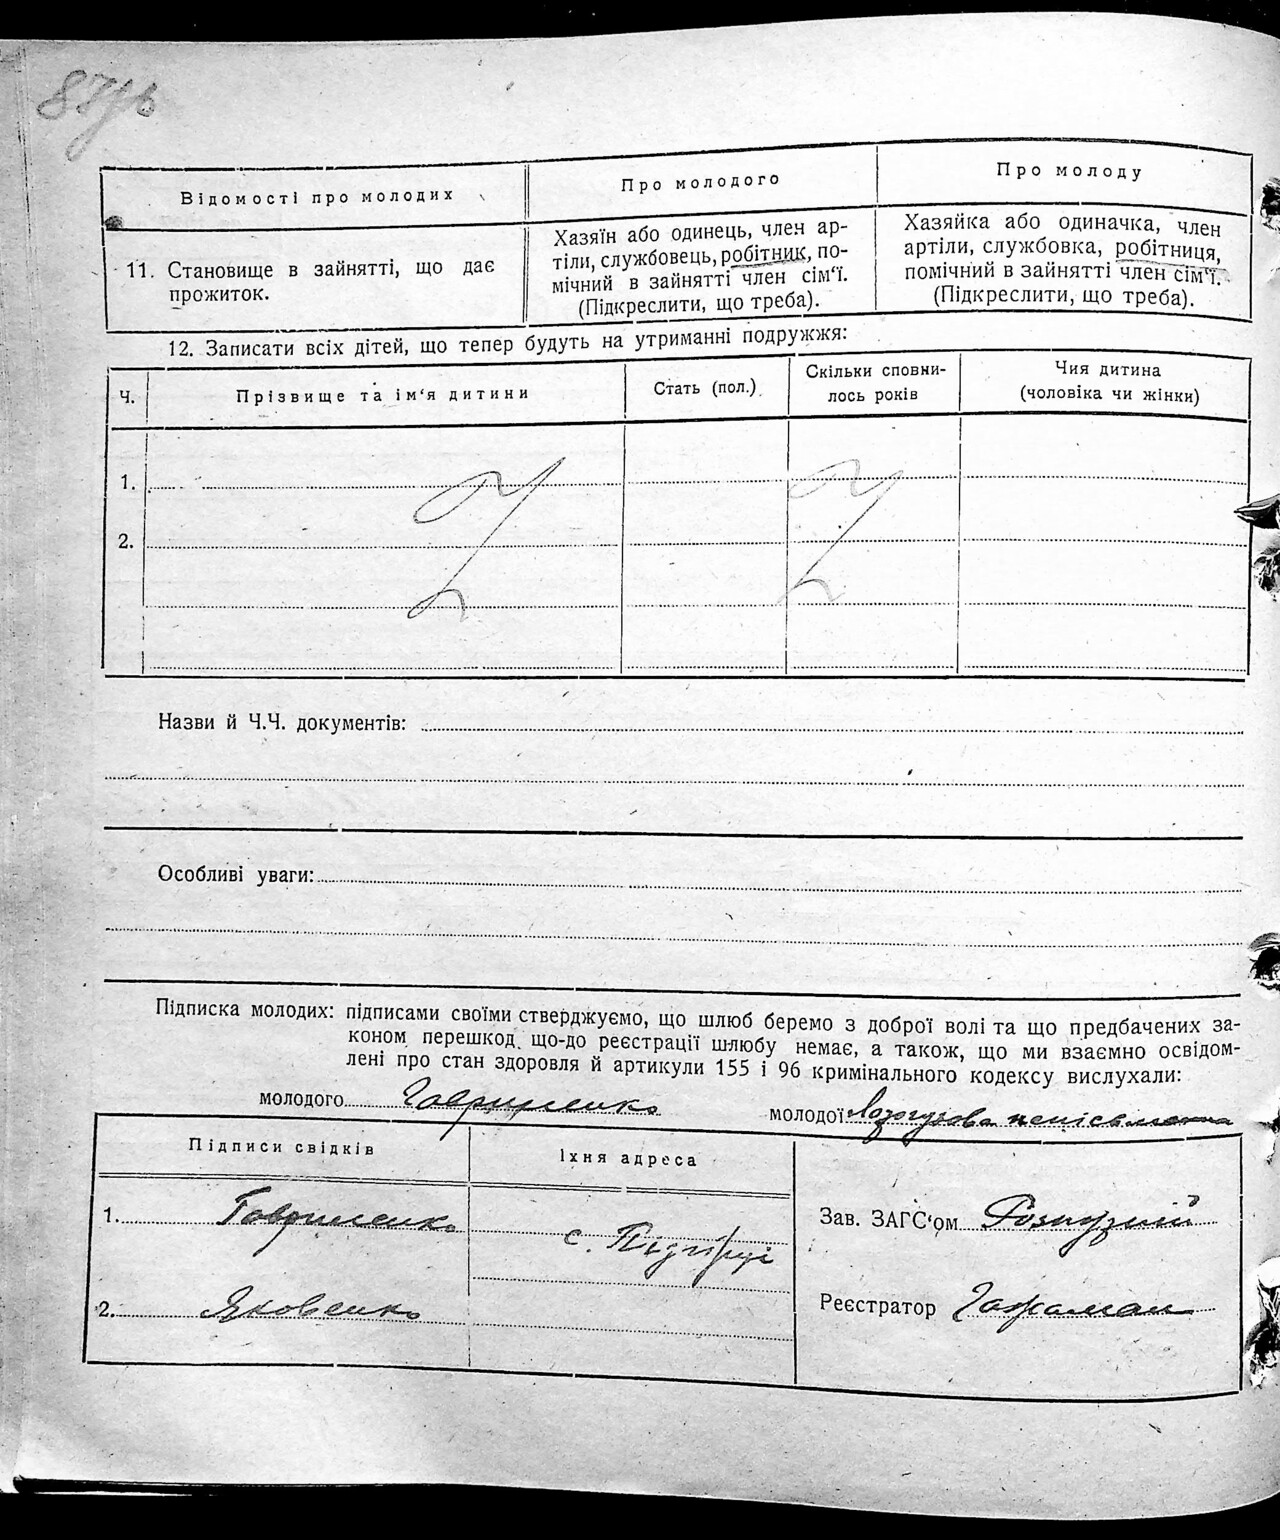 Відомості про молодих
Про молодого
Про молоду
11. Становище в зайнятті, що дає
прожиток.
Хазяїн або одинець, член ар-
тіли, службовець, робітник, по-
мічний в зайнятті член сім'ї.
(Підкреслити, що треба).
Хазяйка або одиначка, член
артіли, службовка, робітниця,
помічний в зайнятті член сім'ї.
(Підкреслити, що треба).
12. Записати всіх дітей, що тепер будуть на утриманні подружжя:
Ч.
Прізвище та ім'я дитини
Стать (пол.)
Скільки сповни-
лось років
Чия дитина
(чоловіка чи жінки)
1.
2.
Назви й Ч.Ч. документів:
Особливі уваги:
Підписка молодих: підписами своїми стверджуємо, що шлюб беремо з доброї волі та що предбачених за-
коном перешкод що-до реєстрації шлюбу немає, а також, що ми взаємно освідом-
лені про стан здоровля й артикули 155 і 96 кримінального кодексу вислухали:
молодого Гавриленко молодої
Підписи свідків
Їхня адреса
1. Гавриленко
с. Підгірці
2. Яковенко
Зав. ЗАГС'ом
Реєстратор